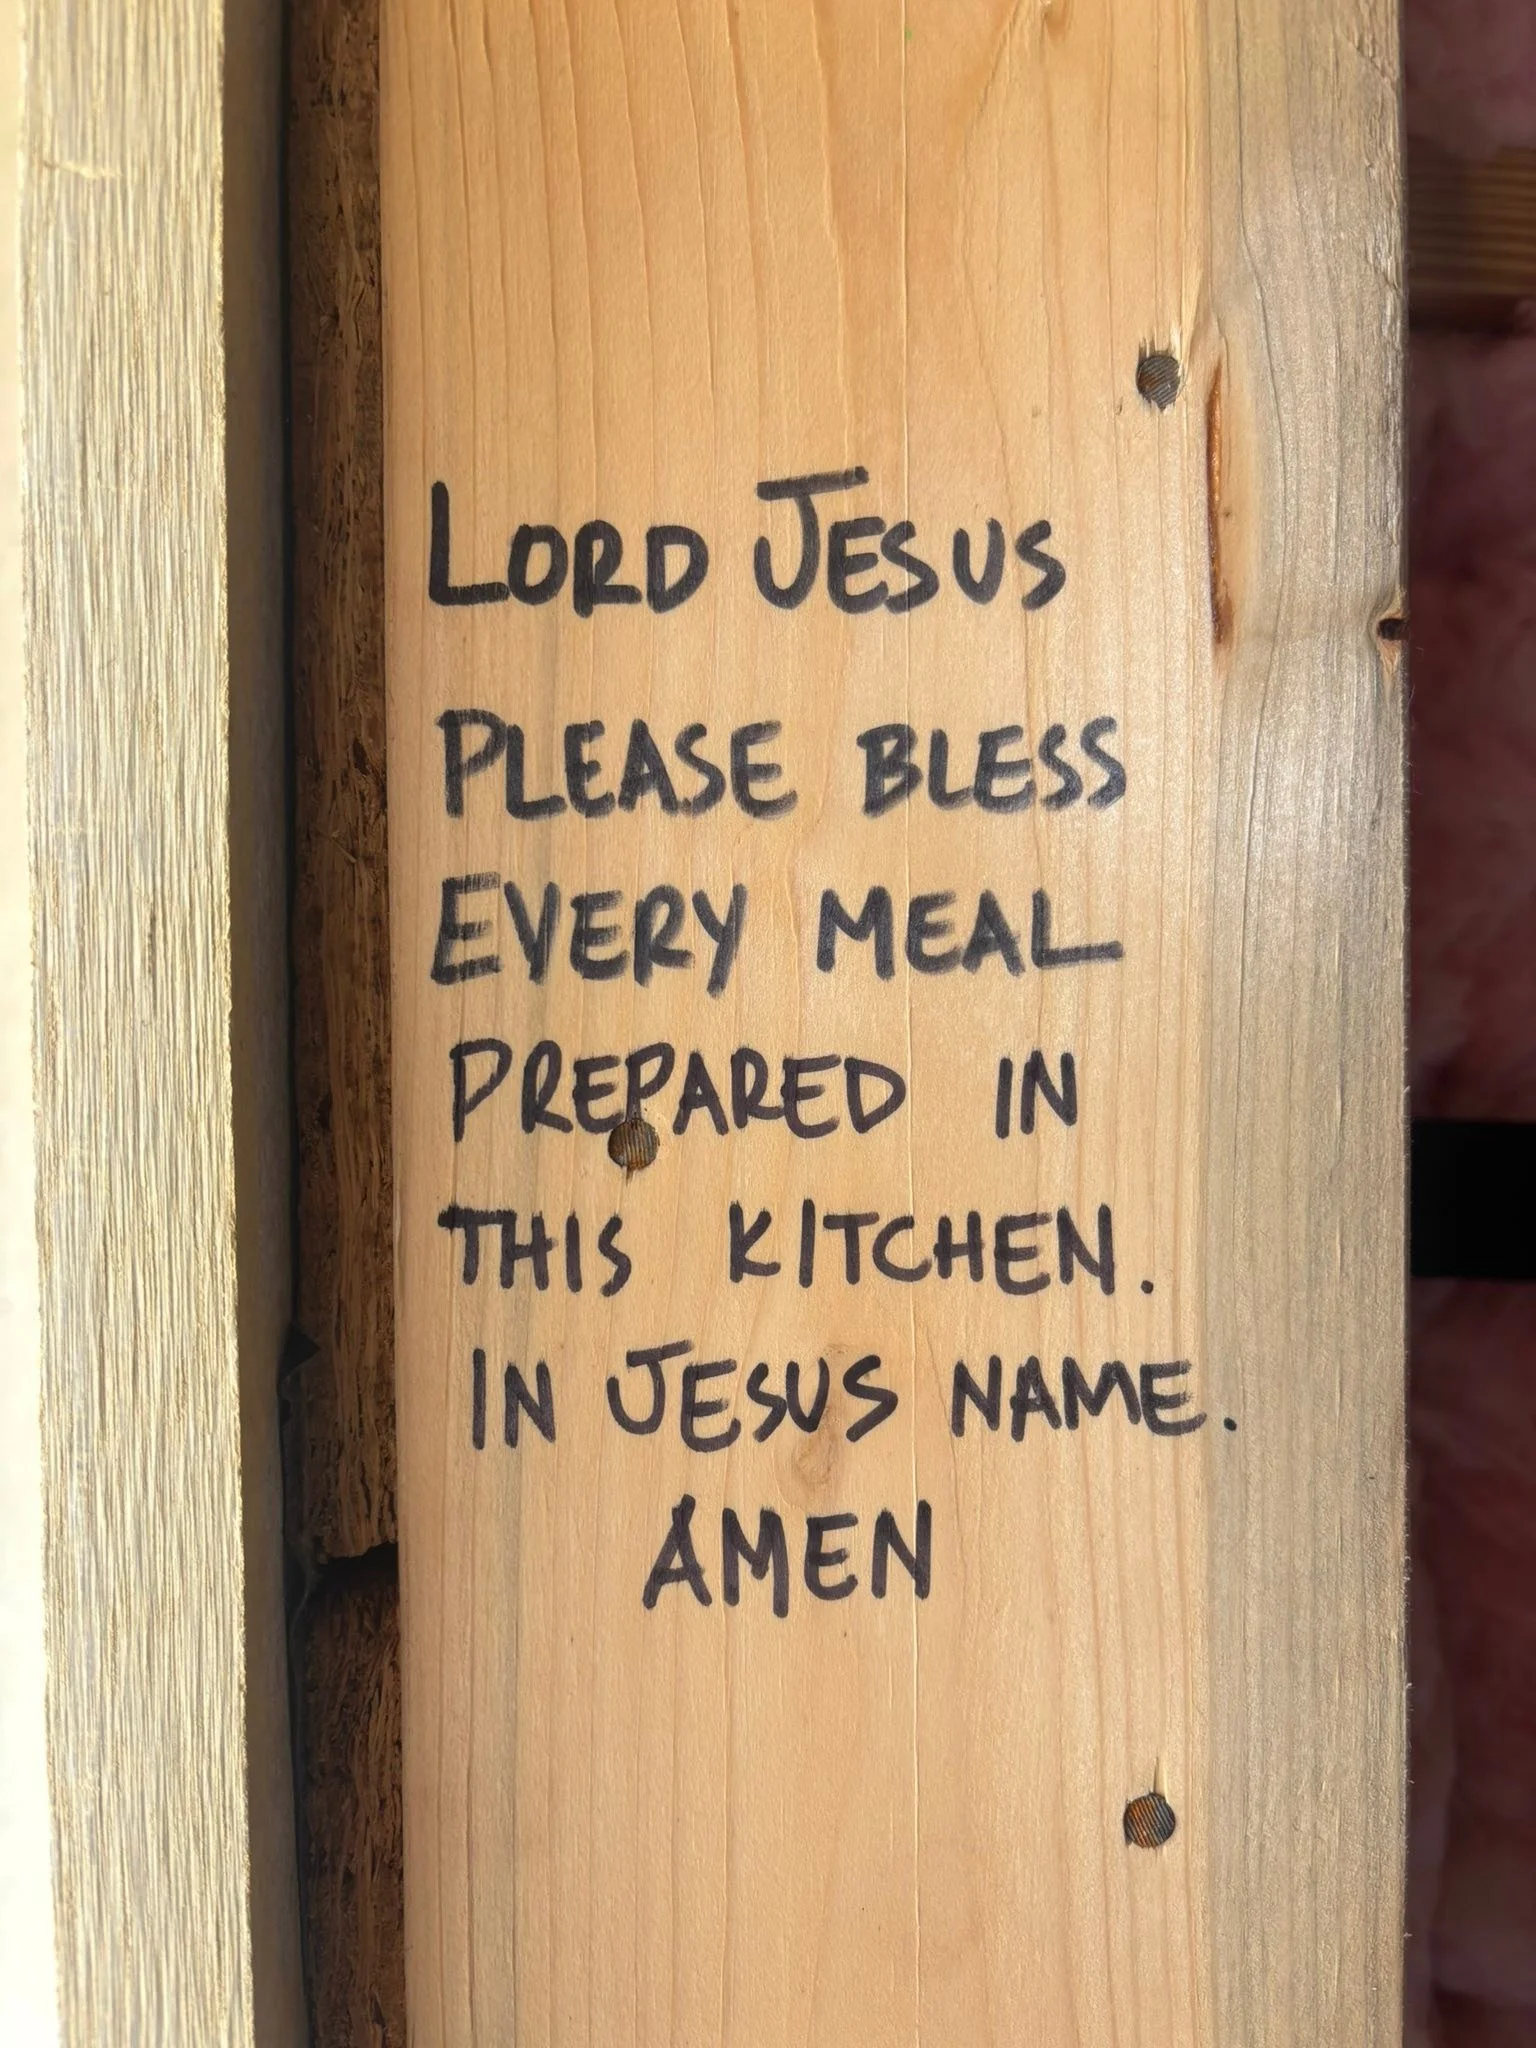 LORD JESUS
PLEASE BLESS
EVERY MEAL
PREPARED IN
THIS KITCHEN.
IN JESUS NAME.
AMEN